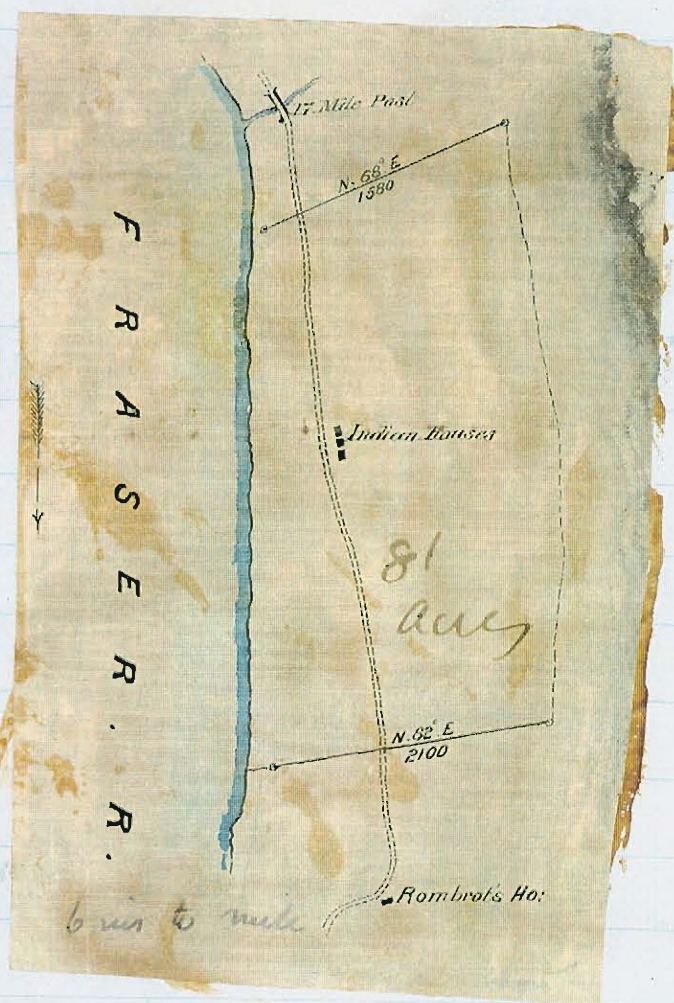 17. Mile Post
N. 68° E
1580
FRASER. R.
Indian Houses
81
acres
N. 82° E
2100
Rombrot's Ho:
6 ins to mile